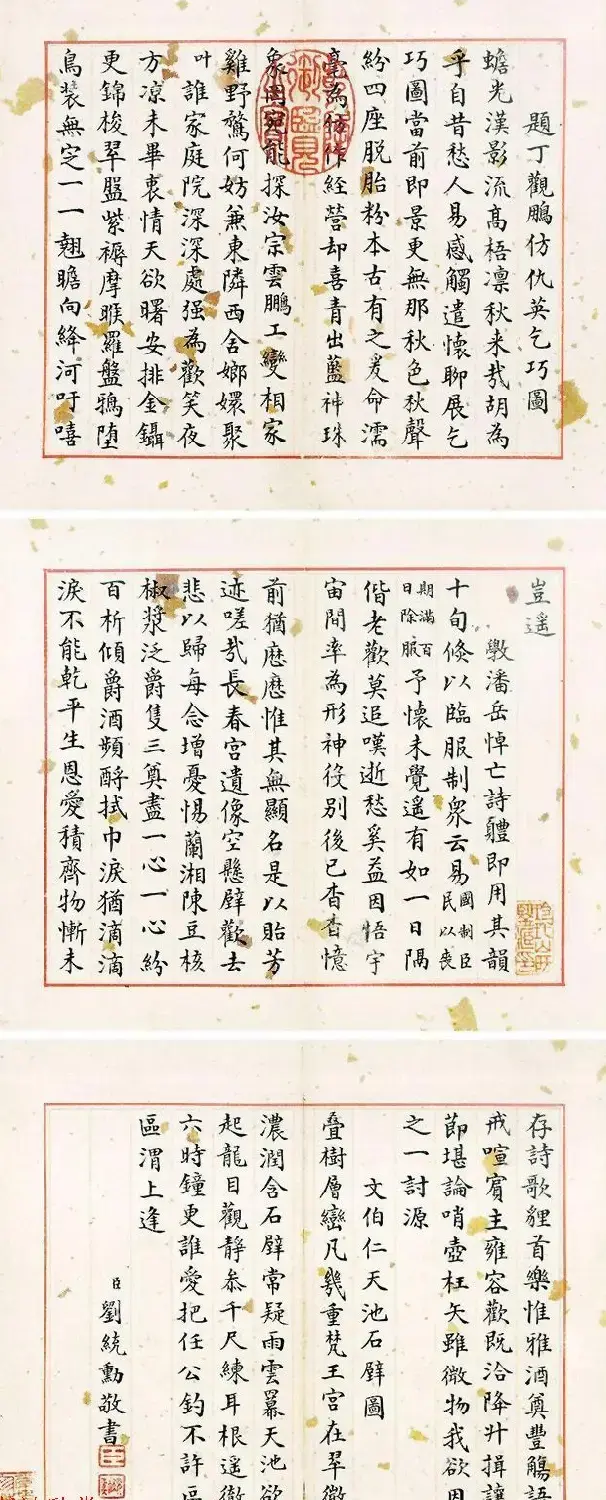 題丁觀鵬仿仇英乞巧圖
蟾光漢影流高梧凜秋来㢤胡為
乎自昔愁人易感觸遣懷聊展乞
巧圖當前即景更無那秋色秋聲
紛四座脱胎粉本古有之爰命濡
毫為仿作経營却喜青出藍神珠
象罔宛能探汝宗雲鵬工變相家
雞野鶩何妨兼東隣西舍嫏嬛聚
叶誰家庭院深深處强為歡笑夜
方凉未畢衷情天欲曙安排金鑷
更錦梭翠盤紫褥摩睺羅盤鴉堕
鳥装無定一一翹瞻向絳河吁嘻
豈遥
斆潘岳悼亡詩軆即用其韻
十旬倐以臨服制衆云易國制臣民以喪
期滿百日除服予懷未覺遥有如一日隔
偕老歡莫追嘆逝愁奚益因悟宇
宙間率為形神役別後已杳杳憶
前猶歴歴惟其無顯名是以貽芳
迹嗟㢤長春宮遺像空懸壁歡去
悲以歸每念增憂惕蘭湘陳豆核
椒漿泛爵隻三奠盡一心一心紛
百析傾爵酒頻酹拭巾淚猶滴滴
淚不能乾平生恩愛積齊物慚未
存詩歌貍首樂惟雅酒奠豐觴語
戒喧賓主雍容歡既洽降升揖讓
節堪論哨壺枉矢雖微物我欲因
之一討源
文伯仁天池石壁圖
叠樹層巒凡幾重梵王宮在翠微
濃潤含石壁常疑雨雲羃天池欲
起龍目觀静叅千尺練耳根遥徹
六時鐘更誰愛把任公釣不許區
區渭上逢
臣劉統勳敬書